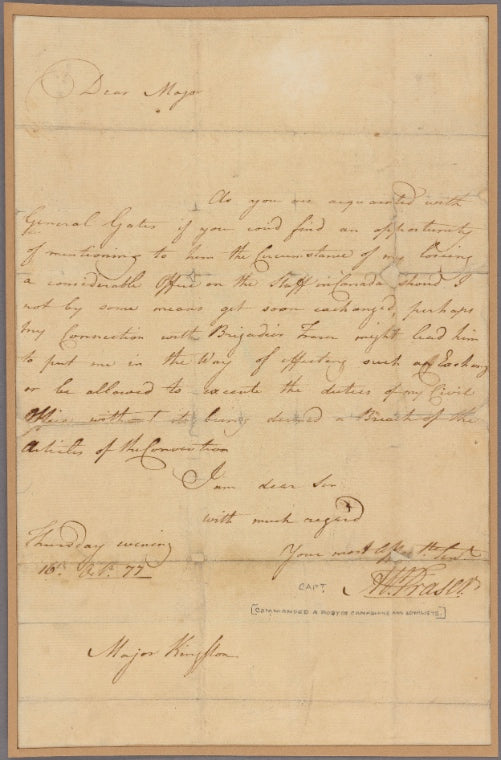 Dear Major
As you are acquainted with
General Gates if you cou'd find an opportunity
of mentioning to him the Circumstance of my losing
a considerable Office on the Staff in Canada should I
not by some means get soon exchanged, perhaps
my Connection with Brigadier Fraser might lead him
to put me in the Way of effecting such an Exchang
or be allowed to execute the duties of my Civil
Office without its being deemed a Breach of the
Articles of the Convention
I am dear Sir
with much regard
Your most
Thursday evening
16th 77
CAPT. Fraser
[COMMANDED A BODY OF CANADIANS AND LOYALISTS.]
Major Kingston